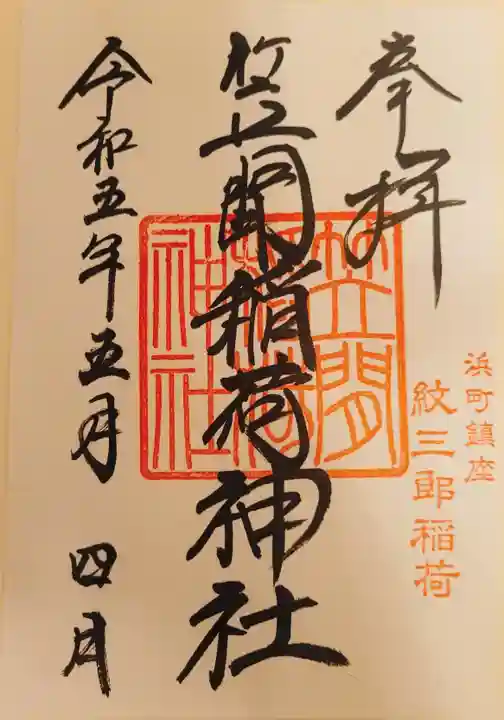 奉拝
浜町鎮座
紋三郎稲荷
笠間稲荷神社
笠間
稲荷
神社
令和五年五月 四日